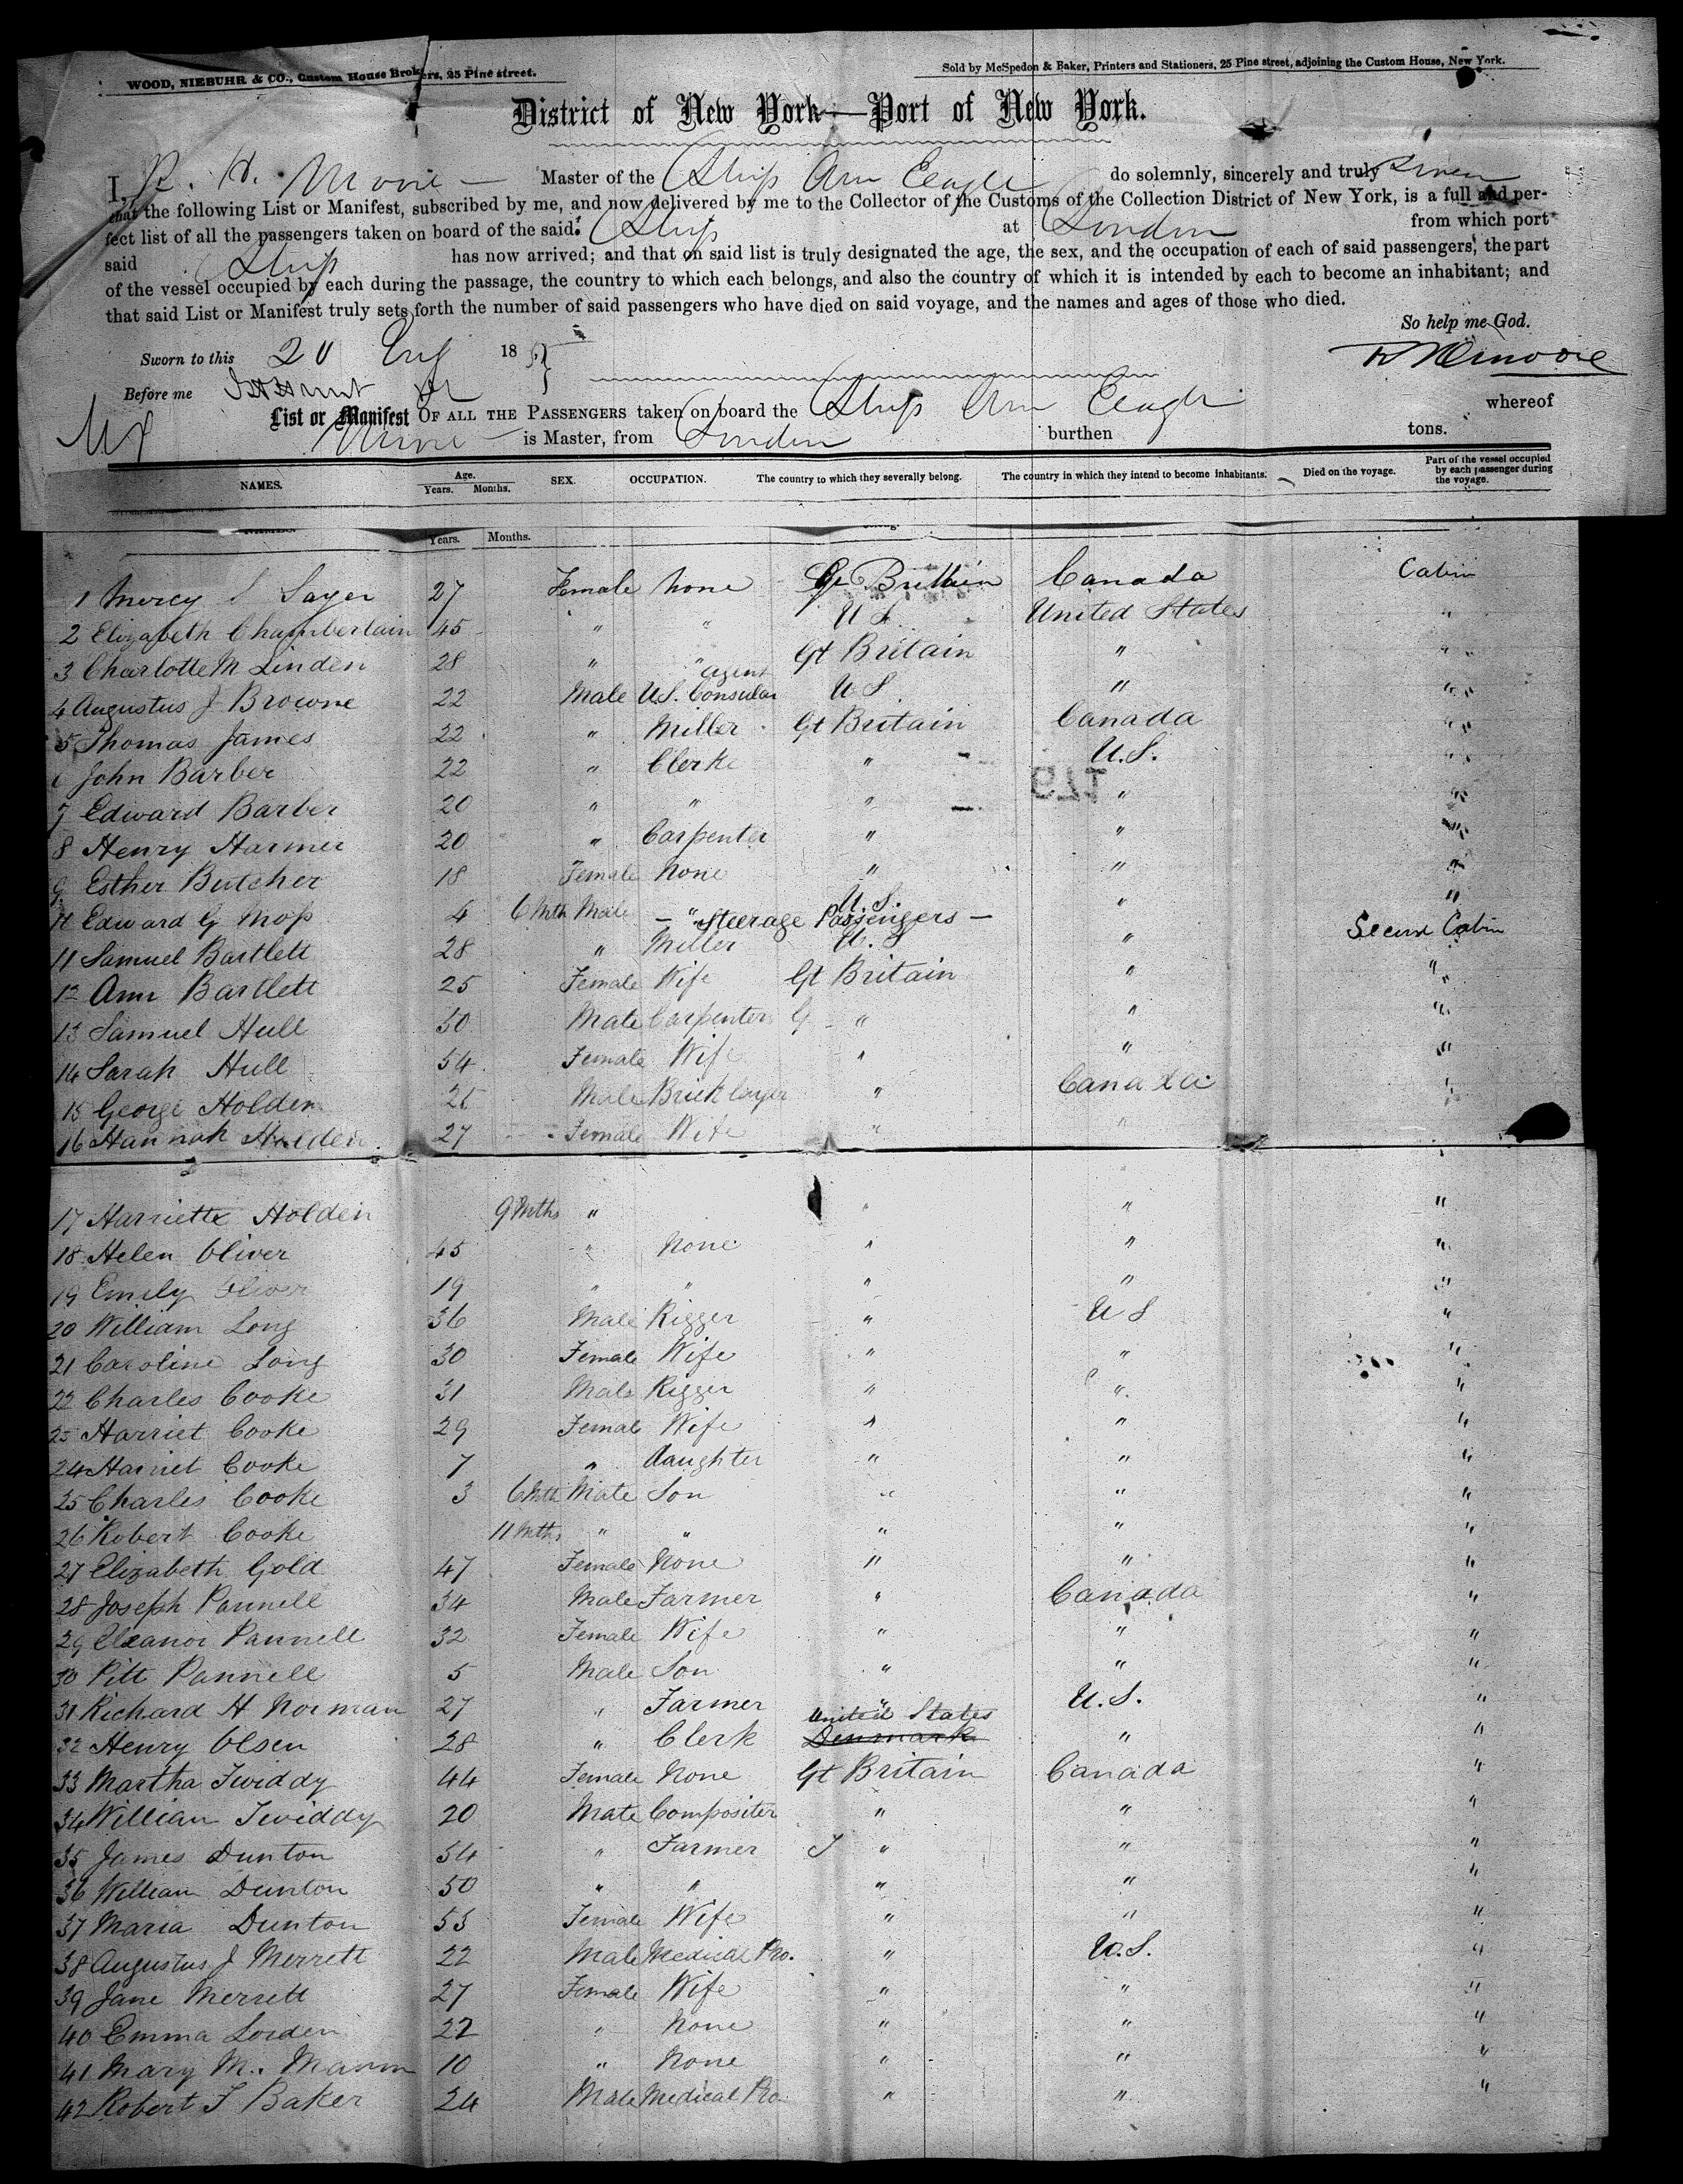 WOOD, NIEBUHR & CO., Custom House Brokers, 25 Pine street.
Sold by McSpedon & Baker, Printers and Stationers, 25 Pine street, adjoining the Custom House, New York.
District of New York—Port of New York.
I, R. H. Moore Master of the Ship Am Eagle do solemnly, sincerely and truly swear
that the following List or Manifest, subscribed by me, and now delivered by me to the Collector of the Customs of the Collection District of New York, is a full and per-
fect list of all the passengers taken on board of the said Ship at London from which port
said Ship has now arrived; and that on said list is truly designated the age, the sex, and the occupation of each of said passengers, the part
of the vessel occupied by each during the passage, the country to which each belongs, and also the country of which it is intended by each to become an inhabitant; and
that said List or Manifest truly sets forth the number of said passengers who have died on said voyage, and the names and ages of those who died.
So help me God.
Sworn to this 20 Aug 18
R H Moore
Before me
List or Manifest OF ALL THE PASSENGERS taken on board the Ship Am Eagle whereof
Moore is Master, from London burthen tons.
NAMES. Age. Years. Months. SEX. OCCUPATION. The country to which they severally belong. The country in which they intend to become inhabitants. Died on the voyage. Part of the vessel occupied by each passenger during the voyage.
Years. Months.
1 Mercy S Sayer 27 Female None Gt Britain Canada Cabin
2 Elizabeth Chamberlain 45 " " U S. United States "
3 Charlotte M Linden 28 " " Gt Britain " "
4 Augustus J Browne 22 Male U.S. Consular agent U S. " "
5 Thomas James 22 " Miller Gt Britain Canada "
6 John Barber 22 " Clerke " U.S. "
179
7 Edward Barber 20 " " " " "
8 Henry Harmer 20 " Carpenter " " "
9 Esther Butcher 18 Female None " " "
10 Edward G Moss 4 6 Mth Male " U.S. " "
— Steerage Passengers —
11 Samuel Bartlett 28 " Miller U. S " Second Cabin
12 Ann Bartlett 25 Female Wife Gt Britain " "
13 Samuel Hull 50 Male Carpenter G " " "
14 Sarah Hull 54 Female Wife " " "
15 George Holden 25 Male Bricklayer " Canada "
16 Hannah Holden 27 Female Wife " " "
17 Harriette Holden 9 Mths " " " "
18 Helen Oliver 45 " None " " "
19 Emily Oliver 19 " " " " "
20 William Long 36 Male Rigger " U S "
21 Caroline Long 30 Female Wife " " "
22 Charles Cooke 31 Male Rigger " " "
23 Harriet Cooke 29 Female Wife " " "
24 Harriet Cooke 7 " daughter " " "
25 Charles Cooke 3 6 Mth Male Son " " "
26 Robert Cooke 11 Mths " " " " "
27 Elizabeth Gold 47 Female None " " "
28 Joseph Pannell 34 Male Farmer " Canada "
29 Eleanor Pannell 32 Female Wife " " "
30 Pitt Pannell 5 Male Son " " "
31 Richard H Norman 27 " Farmer " U.S. "
32 Henry Olsen 28 " Clerk United States Denmark " "
33 Martha Twiddy 44 Female None Gt Britain Canada "
34 William Twiddy 20 Male Compositer " " "
35 James Dunton 54 " Farmer " " "
36 William Dunton 50 " " " " "
37 Maria Dunton 53 Female Wife " " "
38 Augustus J Merrett 22 Male Medical Pro. " U.S. "
39 Jane Merrett 27 Female Wife " " "
40 Emma Lorden 22 " None " " "
41 Mary M. Mann 10 " None " " "
42 Robert T Baker 24 Male Medical Pro. " " "